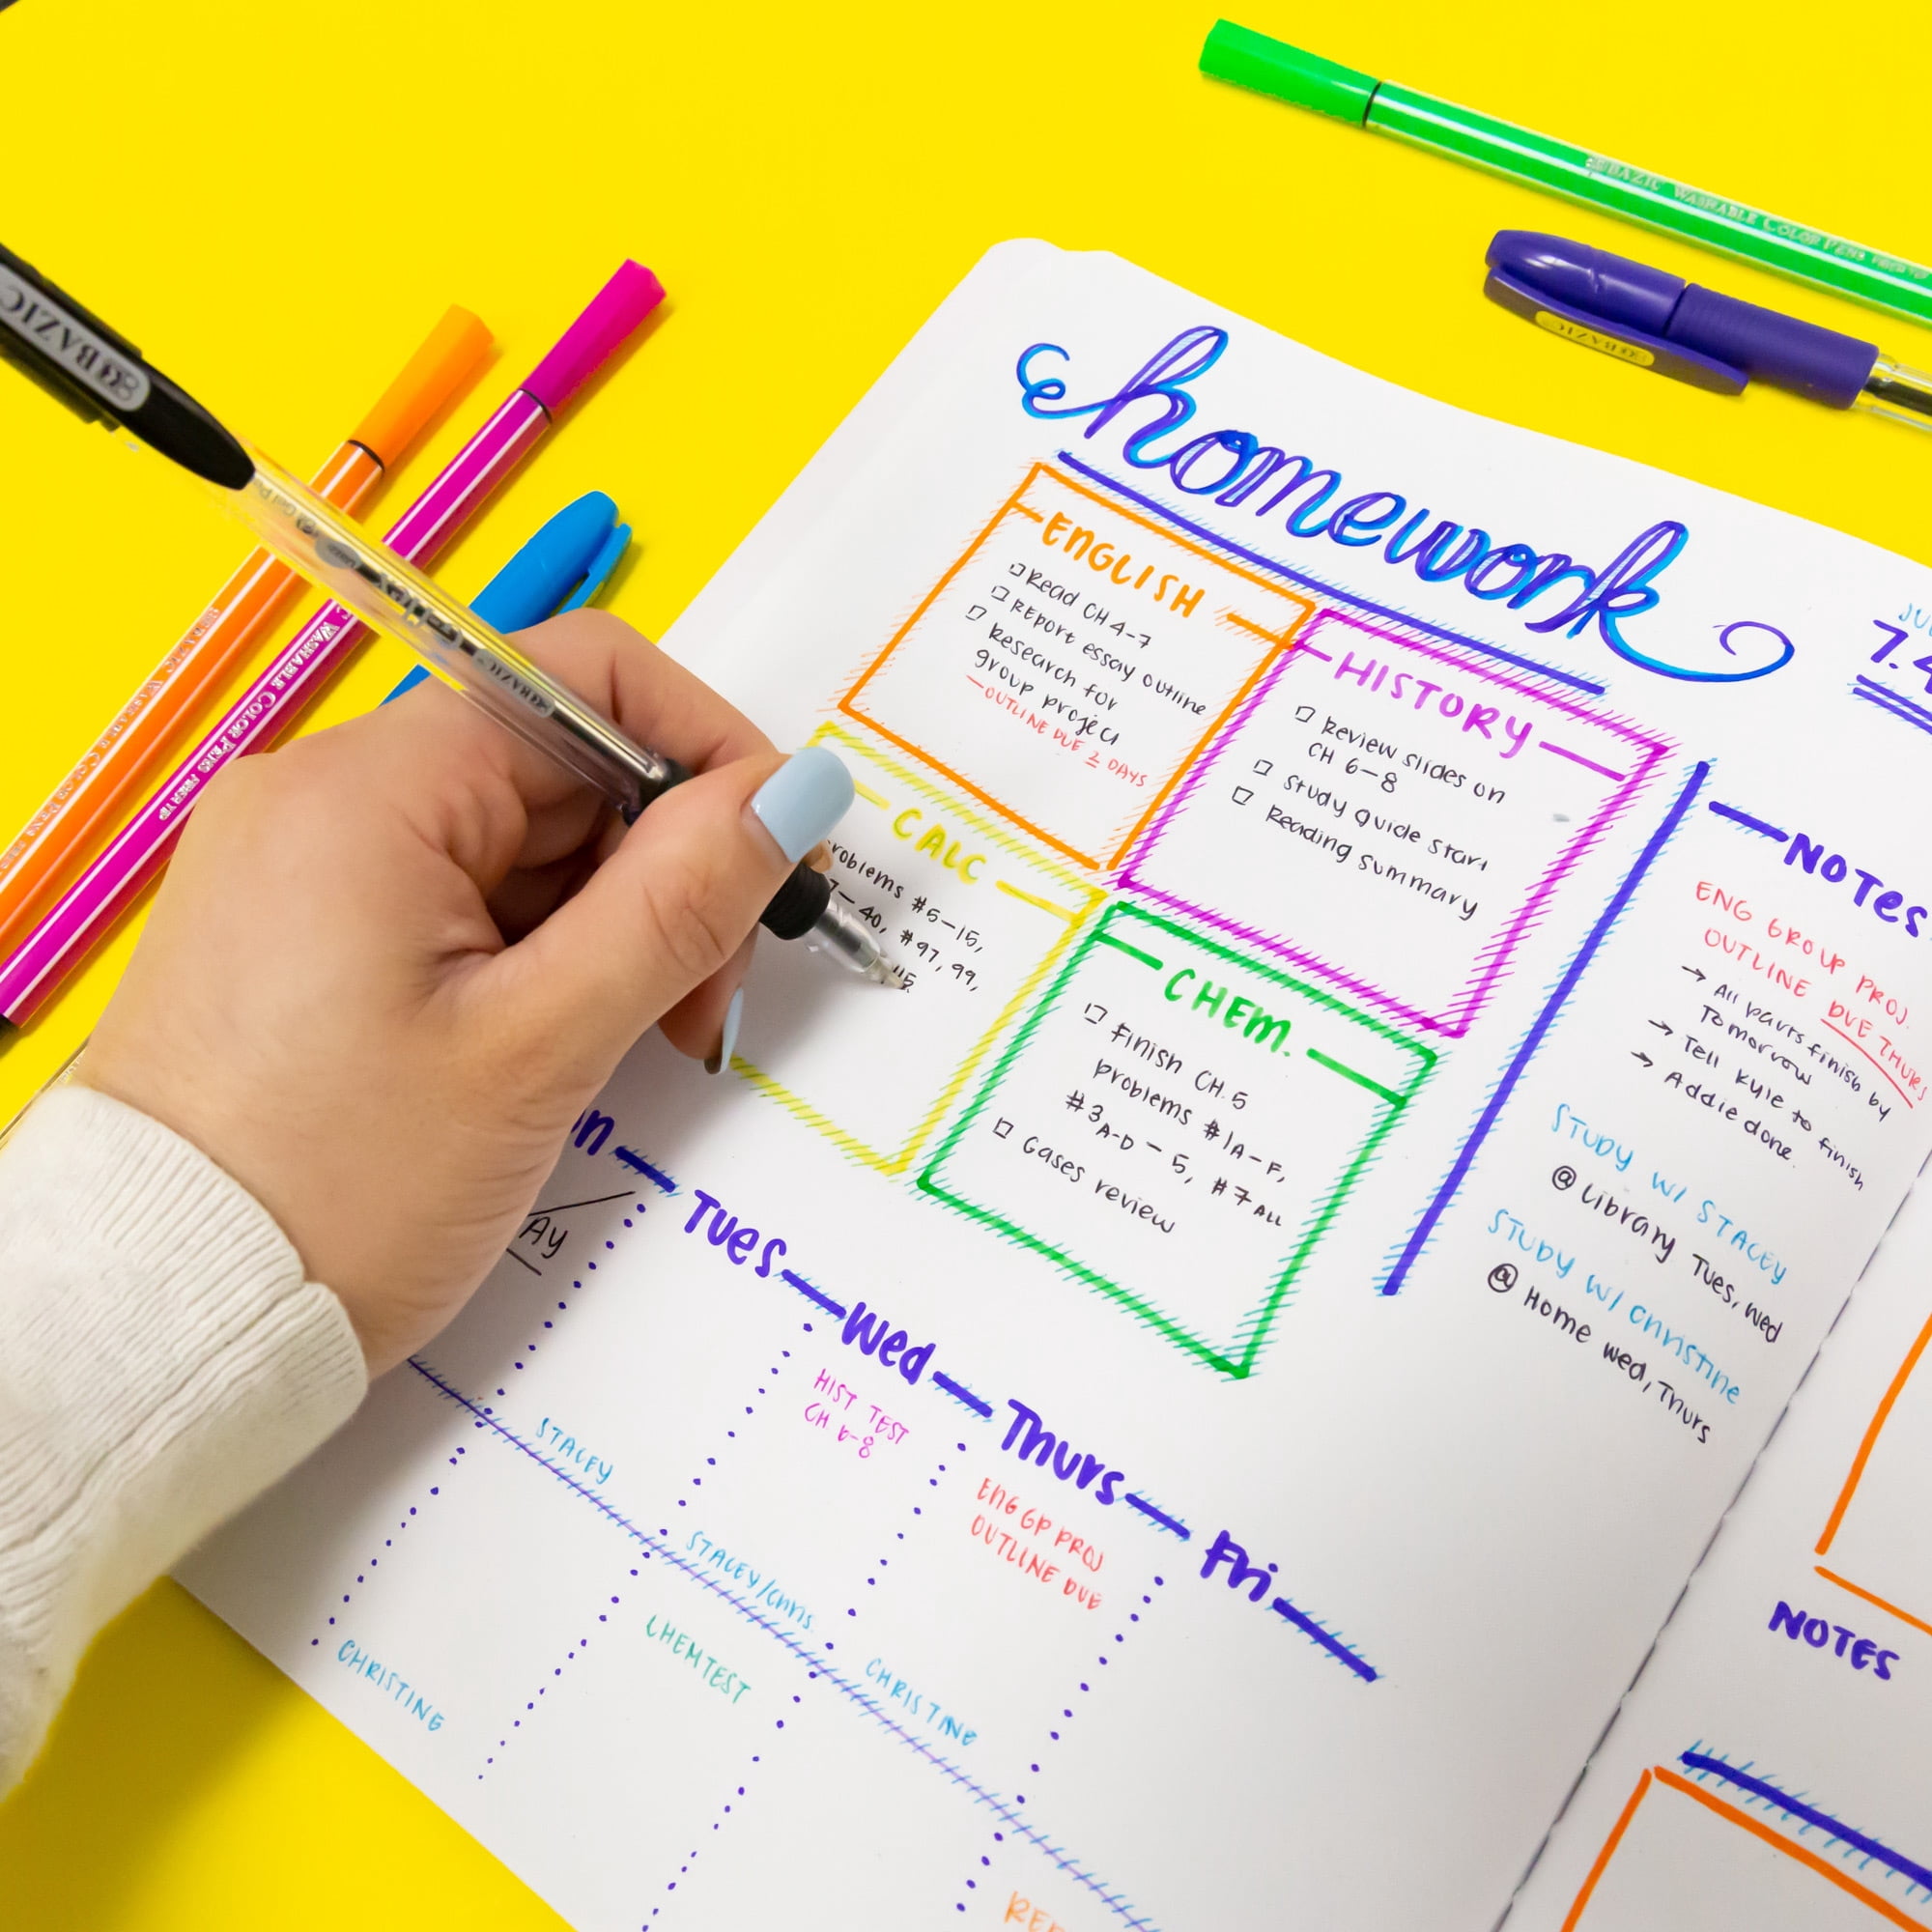 BAZIC WASHABLE COLOR PENS FIBER TIP
BAZIC
BAZIC
BAZIC
WASHABLE COLOR PENS FIBER TIP
homework
ENGLISH
Read CH 4-7
REPORT essay outline
Research for
group project
-OUTLINE DUE 2 DAYS
HISTORY
Review slides on
CH 6-8
Study guide start
Reading summary
CALC
#5-15,
40, #97, 99,
115
CHEM.
Finish CH. 5
problems #1A-F,
#3 A-D - 5, #7 ALL
Gases review
NOTES
ENG GROUP PROJ.
OUTLINE DUE THURS
→ All parts finish by
Tomorrow
→ Tell Kyle to finish
→ Addie done.
STUDY W/ STACEY
@ Library Tues, Wed
STUDY W/ Christine
@ Home Wed, Thurs
Tues
Wed
Thurs
Fri
HIST TEST
CH 6-8
ENG GP PROJ
OUTLINE DUE
STACEY
STACEY/Chris.
CHRISTINE
CHRISTINE
CHEM TEST
NOTES